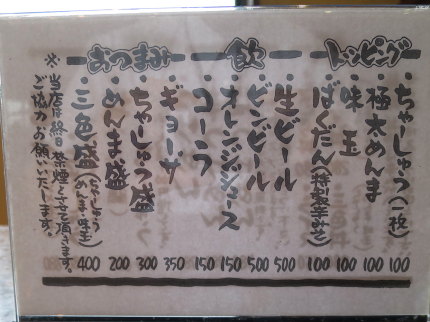 トッピング
・ちゃーしゅう(一枚) 100
・極太めんま 100
・味玉 100
・ばくだん(特製辛みそ) 100
飲
・生ビール 500
・ビンビール 500
・オレンジジュース 150
・コーラ 150
おつまみ
・ギョーザ 350
・ちゃーしゅう盛 300
・めんま盛 200
・三色盛(ちゃーしゅう めんま・味玉) 400
※当店は終日禁煙とさせて頂きます。
ご協力お願いいたします。